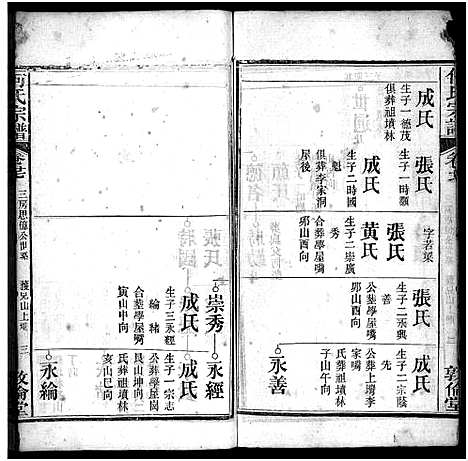 何氏宗譜
卷
敦倫堂
成氏
生子一德茂
俱葬祖墳林
張氏
生子一時顯
成氏
生子二時國
秀
俱葬李家洞
屋後
字若渠
張氏
黃氏
生子二崇廣
秀
合葬學屋嘴
卯山酉向
張氏
生子二永興
善
公葬學屋嘴
卯山酉向
成氏
生子二宗蔭
先
公葬上壪李
家嘴
氏葬祖墳林
子山午向
永善
崇秀
成氏
生子三永經
綸 緒
合葬學屋嘴
寅山申向
永經
成氏
生子一宗志
公葬學屋嘴
艮山坤向
氏葬祖墳林
亥山巳向
永綸
何氏宗譜
三房思德公世系
三
敦倫堂